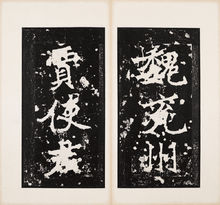 魏兗州
賈使君